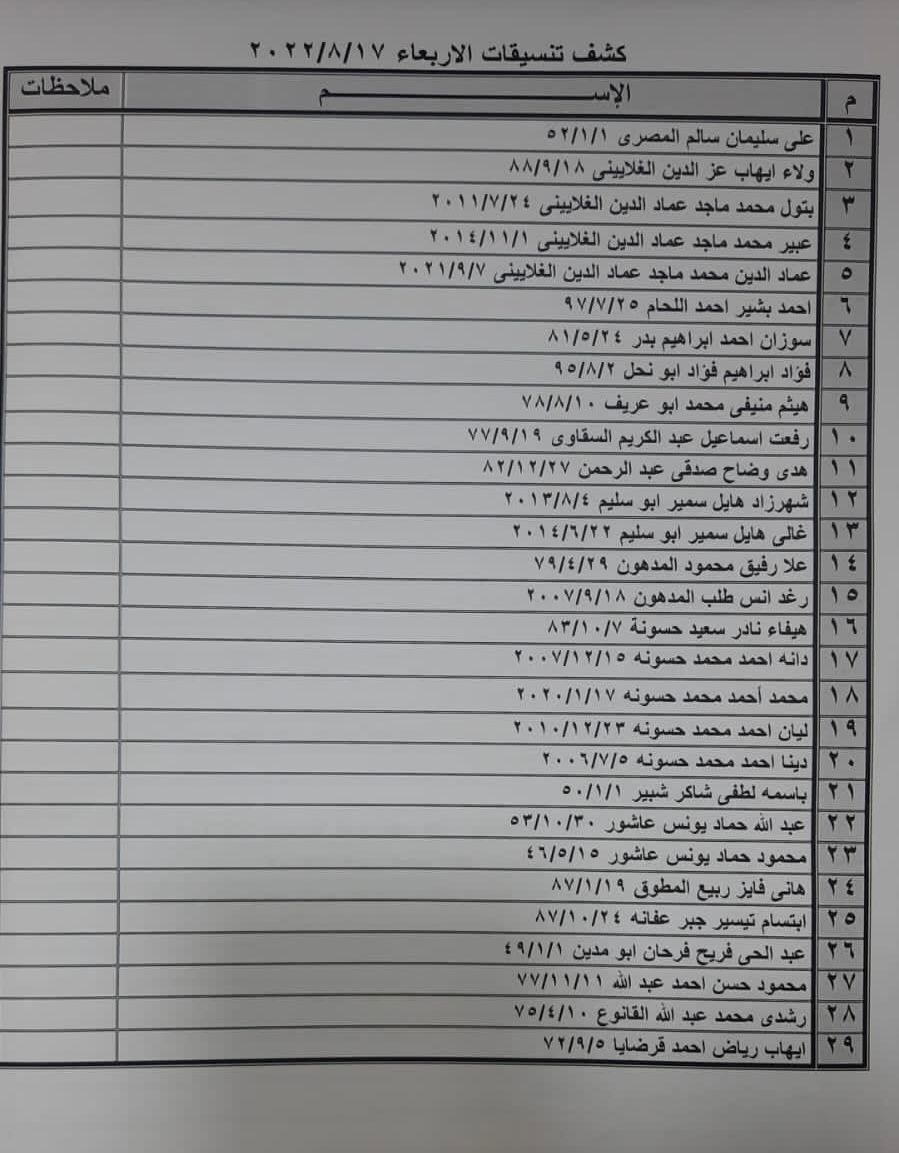 كشف تنسيقات الاربعاء ٢٠٢٢/٨/١٧
م الإســـــــــم ملاحظات
١ على سليمان سالم المصرى ٥٢/١/١
٢ ولاء ايهاب عز الدين الغلايينى ٨٨/٩/١٨
٣ بتول محمد ماجد عماد الدين الغلايينى ٢٠١١/٧/٢٤
٤ عبير محمد ماجد عماد الدين الغلايينى ٢٠١٤/١١/١
٥ عماد الدين محمد ماجد عماد الدين الغلايينى ٢٠٢١/٩/٧
٦ احمد بشير احمد اللحام ٩٧/٧/٢٥
٧ سوزان احمد ابراهيم بدر ٨١/٥/٢٤
٨ فؤاد ابراهيم فؤاد ابو نحل ٩٥/٨/٢
٩ هيثم منيفى محمد ابو عريف ٧٨/٨/١٠
١٠ رفعت اسماعيل عبد الكريم السقاوى ٧٧/٩/١٩
١١ هدى وضاح صدقى عبد الرحمن ٨٢/١٢/٢٧
١٢ شهرزاد هايل سمير ابو سليم ٢٠١٣/٨/٤
١٣ غالى هايل سمير ابو سليم ٢٠١٤/٦/٢٢
١٤ علا رفيق محمود المدهون ٧٩/٤/٢٩
١٥ رغد انس طلب المدهون ٢٠٠٧/٩/١٨
١٦ هيفاء نادر سعيد حسونة ٨٣/١٠/٧
١٧ دانه احمد محمد حسونه ٢٠٠٧/١٢/١٥
١٨ محمد أحمد محمد حسونه ٢٠٢٠/١/١٧
١٩ ليان احمد محمد حسونه ٢٠١٠/١٢/٢٣
٢٠ دينا احمد محمد حسونه ٢٠٠٦/٧/٥
٢١ باسمه لطفى شاكر شبير ٥٠/١/١
٢٢ عبد الله حماد يونس عاشور ٥٣/١٠/٣٠
٢٣ محمود حماد يونس عاشور ٤٦/٥/١٥
٢٤ هانى فايز ربيع المطوق ٨٧/١/١٩
٢٥ ابتسام تيسير جبر عفانه ٨٧/١٠/٢٤
٢٦ عبد الحى فريح فرحان ابو مدين ٤٩/١/١
٢٧ محمود حسن احمد عبد الله ٧٧/١١/١١
٢٨ رشدى محمد عبد الله القانوع ٧٥/٤/١٠
٢٩ ايهاب رياض احمد قرضايا ٧٢/٩/٥